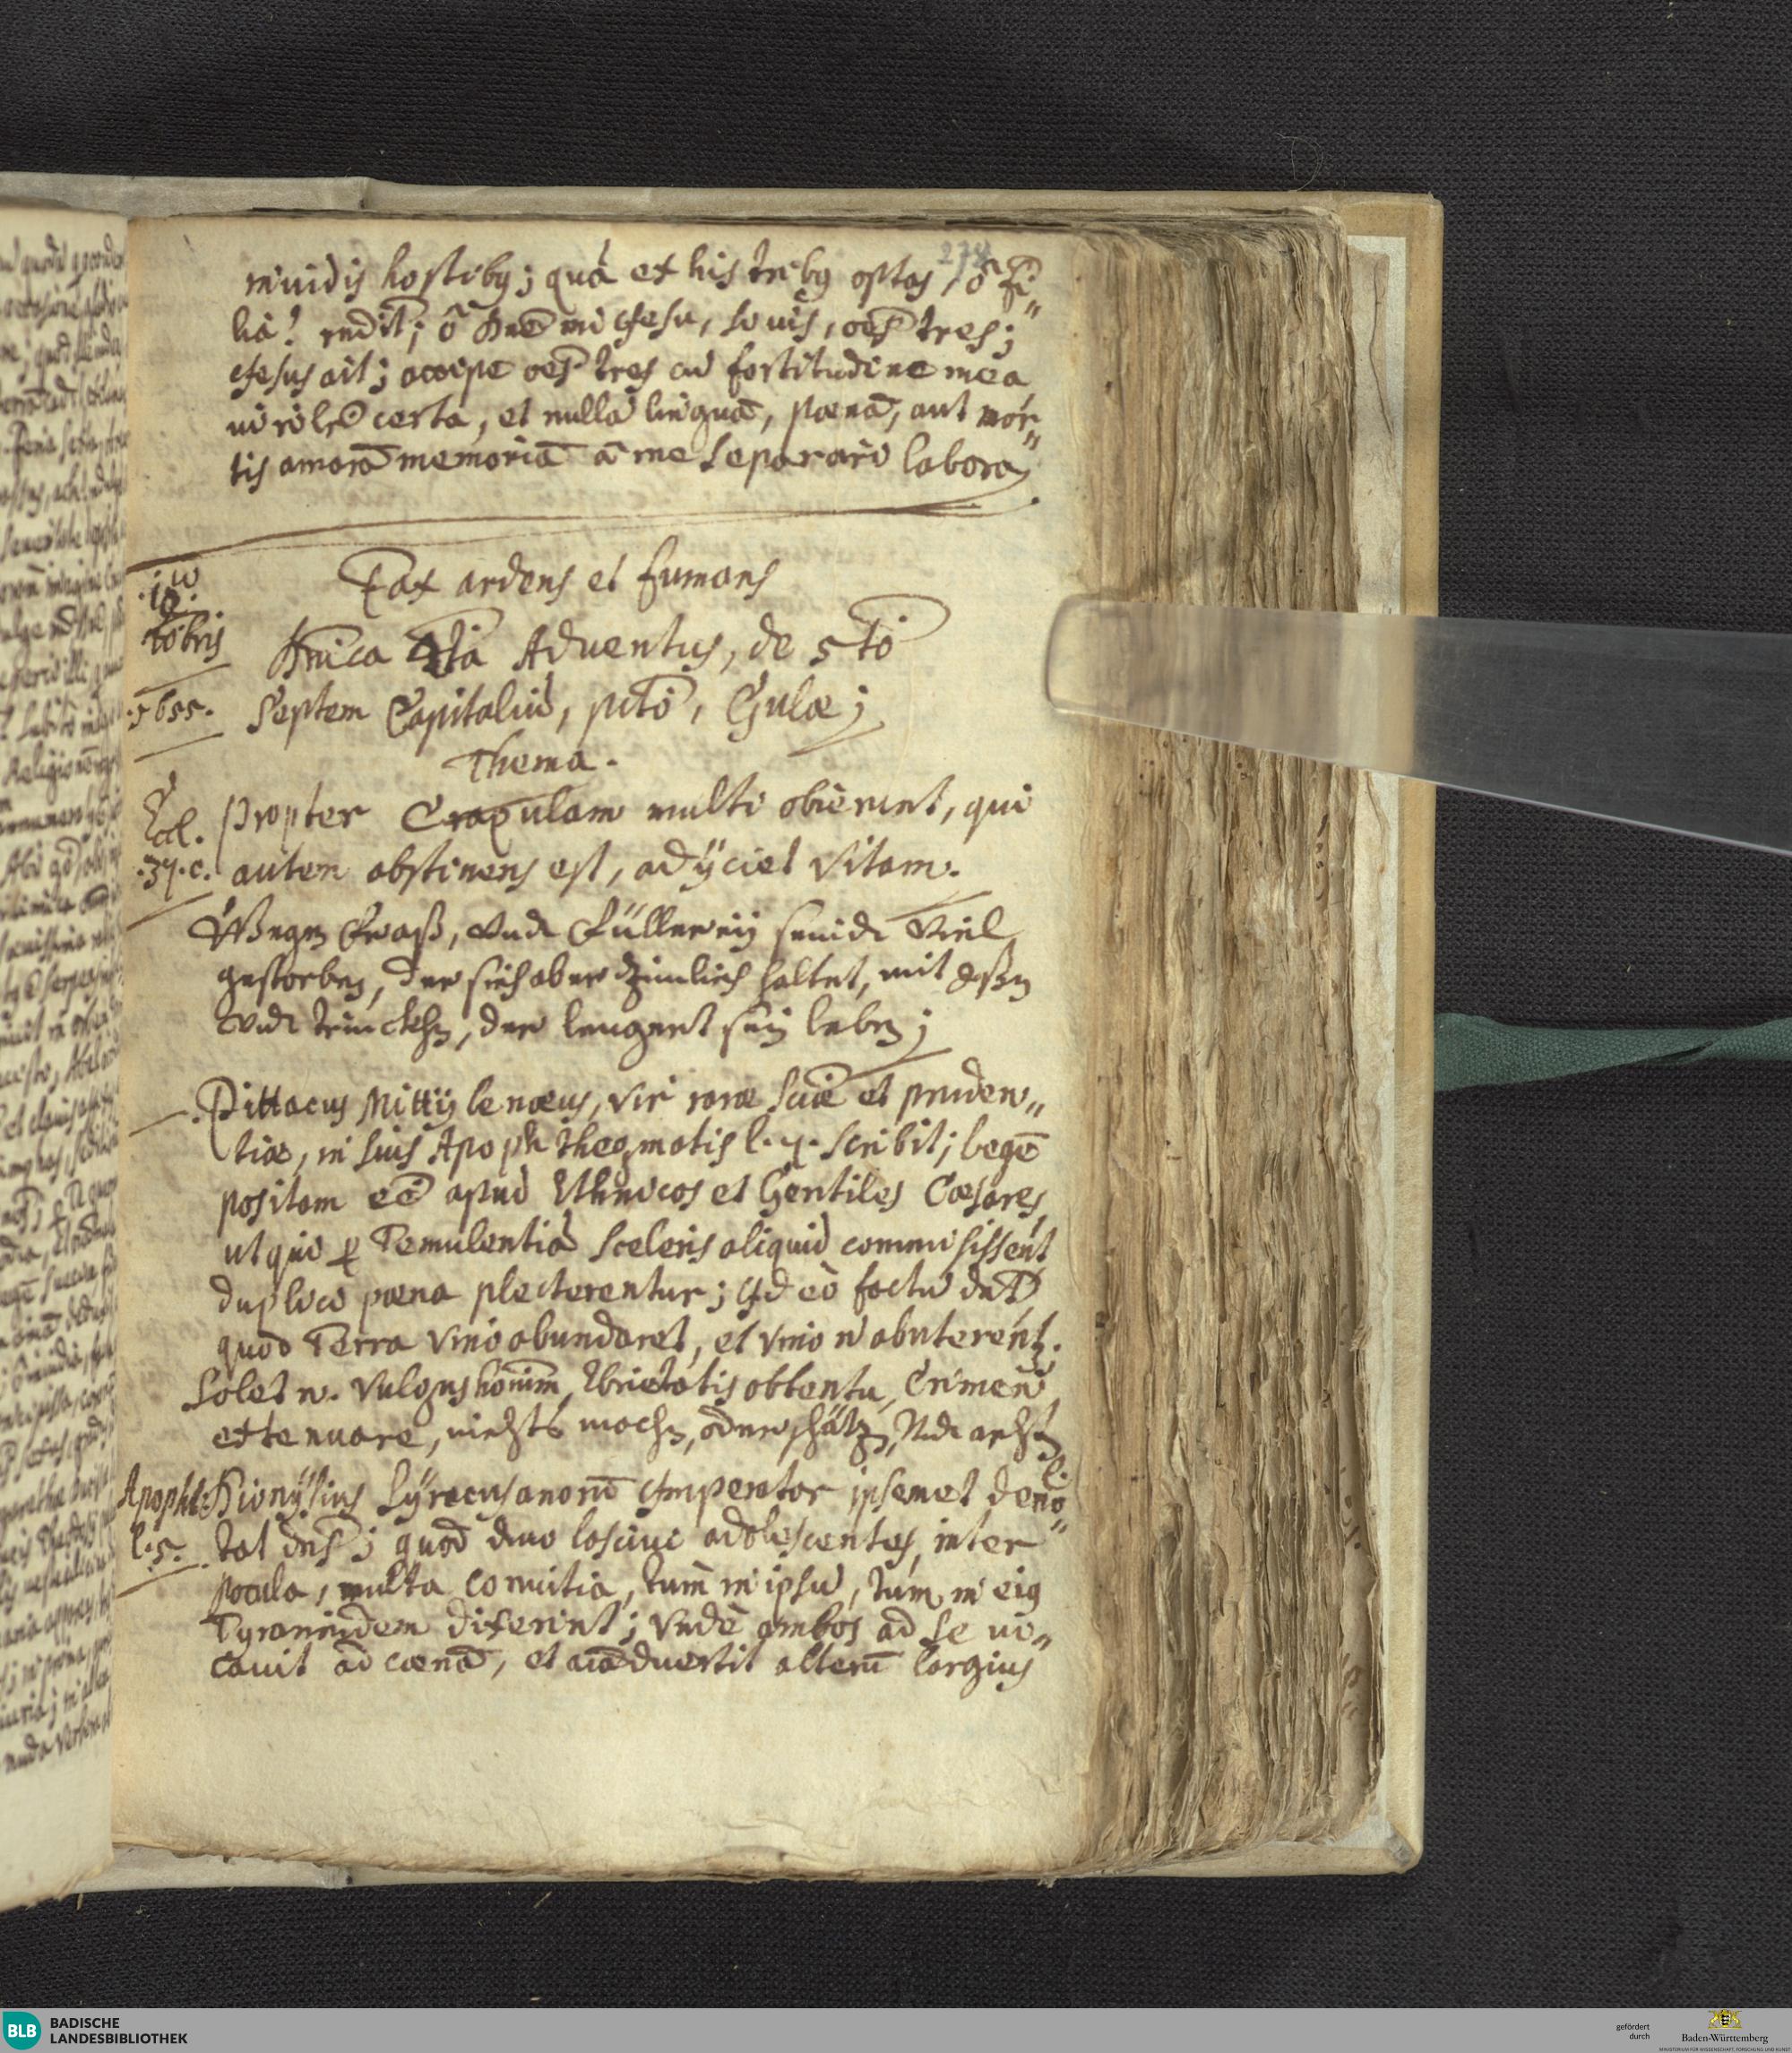 274
inuidis hostibꝫ; quã et his tribꝫ optas, ô fi„
lia? rñdit; ô Dñe mi Jesu, si uis, oẽs tres;
Jesus ait; accipe oẽs tres cũ fortitudine mea
uirilẽ certa, et nullã linguã, pœnã, aut mor„
tis amarã memoriã â me separari labora.
Fax ardens et fumans
.10.
bris
.1655.
Dñica 4tâ Aduentus, de 5tô
septem Capitaliũ, pctõ, Gulæ;
Thema.
Eccl.
.37.c.
Propter Crapulam multi obierunt, qui
autem abstinens est, adijciet Vitam.
Wegen Fraß, vnd Füllereij seind Viel
gestorben, der sich aber zimlich haltet, mit eßen
vnd trinckhen, der lengert sein leben;
Pittacus Mittÿlenæus, vir raræ sciæ et pruden„
tiæ, in suis Apophthegmatis l. 4. scribit; legẽ
positam eẽ apud Ethnicos et Gentiles Cæsares,
ut qui ꝑ Temulentiã sceleris aliquid commisissent
duplici pœna plecterentur; Id eò factũ
quod Terra Vino abundaret, et vino ñ abuterentꝫ.
Solet n. Vulgus hoĩum, Ebrietatis obtentu, Crimen
extenuare, nichts
Apopht:
l.5.
Dionÿsius Sÿracusanorũ Imperator ipsemet deno„
tat dñs; quod duo lasciui adolescentes, inter
pocula, multa conuitia, tum in ipsũ, tum in eiꝫ
Tyrannidem dixerint; vnde ambos ad se uo„
cauit ad cænã, et aĩaduertit alterũ largius
BLB
BADISCHE
LANDESBIBLIOTHEK
gefördert
durch
Baden-Württemberg